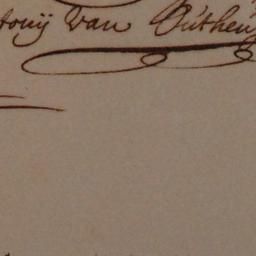 tonij Van Buthen